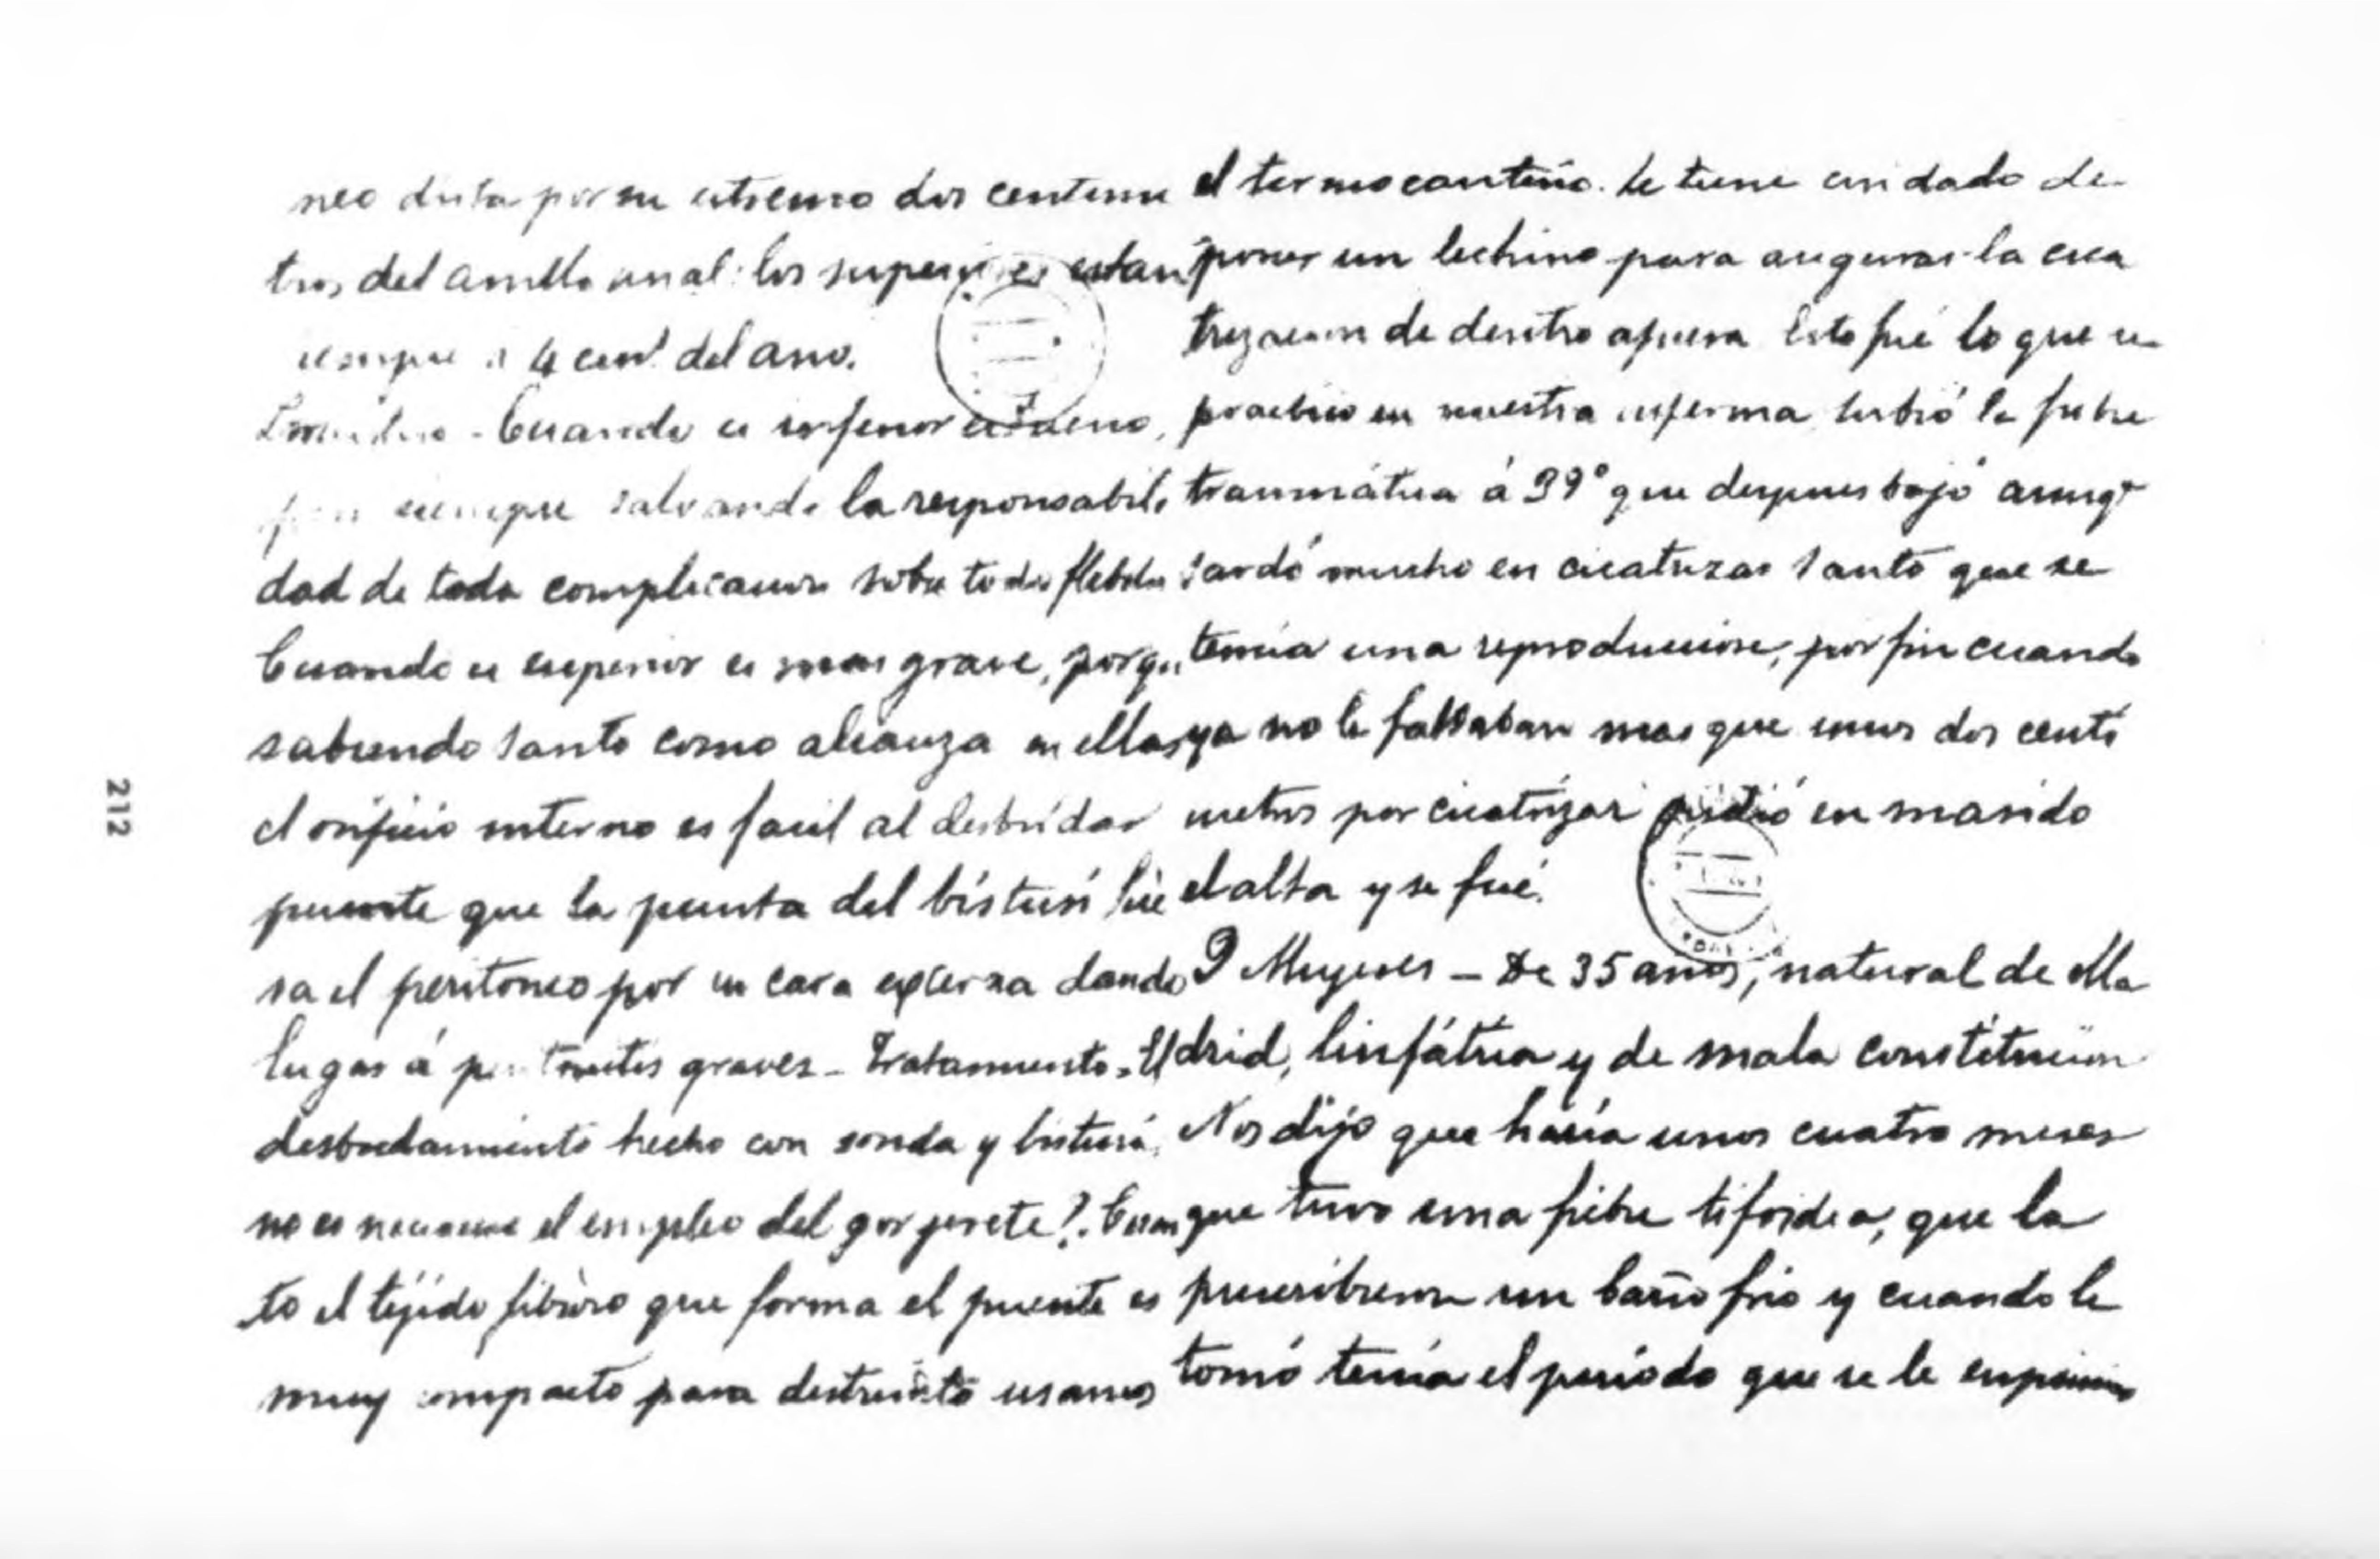 neo dista por su estremo dos centime
tros del anillo anal: los superiores estan
siempre á 4 cent. del ano.
Pronóstico - Cuando es inferior es bueno,
pero siempre salvando la responsabili
dad de toda complicacion sobre todo flebitis
Cuando es superior es mas grave, porque
sabiendo tanto como alcanza en ellas
el orificio interno es facil al desbridar
puente que la punta del bisturí hie
ra el peritoneo por su cara externa dando
lugar á peritonitis graves - Tratamiento. El
desbridamiento hecho con sonda y bisturí,
no es necesario el empleo del gorjerete?. Cuan
to el tejido fibroso que forma el puente es
muy compacto para destruirlo usamos
el termocauterio. Se tiene cuidado de
poner un lechino para asegurar la cica
trizacion de dentro afuera. Esto fué lo que se
practicó en nuestra enferma, subió la fiebre
traumática á 39° que despues bajó
tardó mucho en cicatrizar tanto que se
temia una reproduccion, por fin cuando
ya no le faltaban mas que unos dos centi
metros por cicatrizar pidió su marido
el alta y se fué.
9 Mujeres - De 35 años, natural de Ma
drid, linfática y de mala constitucion
Nos dijo que hacía unos cuatro meses
que tuvo una fiebre tifoidea, que la
prescribieron un baño frio y cuando le
tomó tenía el período que se le suprimió
212